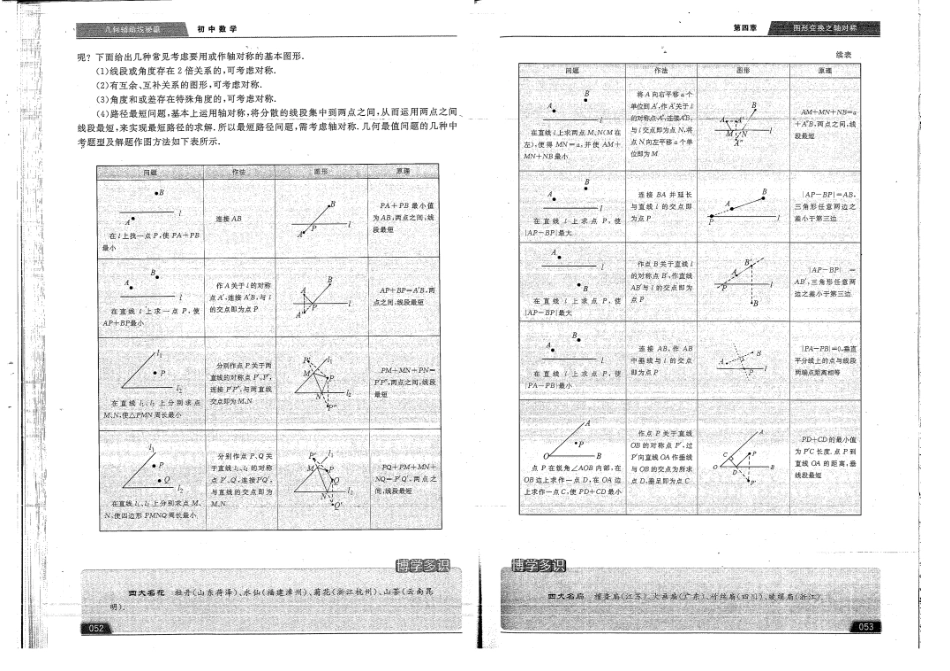 初中数学
呢?下面给出几种常见考虑要用或作轴对称的基本图形.
(1)线段或角度存在2倍关系的,可考虑对称.
(2)有互余、互补关系的图形,可考虑对称.
(3)角度和或差存在特殊角度的,可考虑对称.
(4)路径最短问题,基本上运用轴对称,将分散的线段集中到两点之间,从而运用两点之间
线段最短,来实现最短路径的求解.所以最短路径问题,需考虑轴对称.几何最值问题的几种中
考题型及解题作图方法如下表所示.
问题 作法 图形 原理
在l上找一点P,使PA+PB
最小
连接AB
PA+PB最小值
为AB,两点之间,线
段最短
在直线l上求一点P,使
AP+BP最小
作A关于l的对称
点A',连接A'B,与l
的交点即为点P
AP+BP=A'B,两
点之间,线段最短
在直线l₁、l₂上分别求点
M、N,使△PMN周长最小
分别作点P关于两
直线的对称点P'、P'',
连接P'P'',与两直线
交点即为M、N
PM+MN+PN=
P'P'',两点之间,线段
最短
在直线l₁、l₂上分别求点M、
N,使四边形PMNQ周长最小
分别作点P、Q关
于直线l₁、l₂的对称
点P'、Q',连接P'Q',
与直线的交点即为
M、N
PQ+PM+MN+
NQ=P'Q',两点之
间,线段最短
博学多识
四大名花 牡丹(山东菏泽)、水仙(福建漳州)、菊花(浙江杭州)、山茶(云南昆
明).
052
第四章 图形变换之轴对称
续表
问题 作法 图形 原理
在直线l上求两点M、N(M在
左),使得MN=a,并使AM+
MN+NB最小
将A向右平移a个
单位到A',作A'关于l
的对称点A'',连接A''B,
与l交点即为点N,将
点N向左平移a个单
位即为M
AM+MN+NB=a
+A''B,两点之间,线
段最短
在直线l上求点P,使
|AP-BP|最大
连接BA并延长
与直线l的交点即
为点P
|AP-BP|=AB,
三角形任意两边之
差小于第三边
在直线l上求点P,使
|AP-BP|最大
作点B关于直线l
的对称点B',作直线
AB'与l的交点即为
点P
|AP-BP|=
AB',三角形任意两
边之差小于第三边
在直线l上求点P,使
|PA-PB|最小
连接AB,作AB
中垂线与l的交点
即为点P
|PA-PB|=0,垂直
平分线上的点与线段
两端点距离相等
点P在锐角∠AOB内部,在
OB边上求作一点D,在OA边
上求作一点C,使PD+CD最小
作点P关于直线
OB的对称点P',过
P'向直线OA作垂线
与OB的交点为所求
点D,垂足即为点C
PD+CD的最小值
为P'C长度,点P到
直线OA的距离,垂
线段最短
博学多识
四大名扇
053